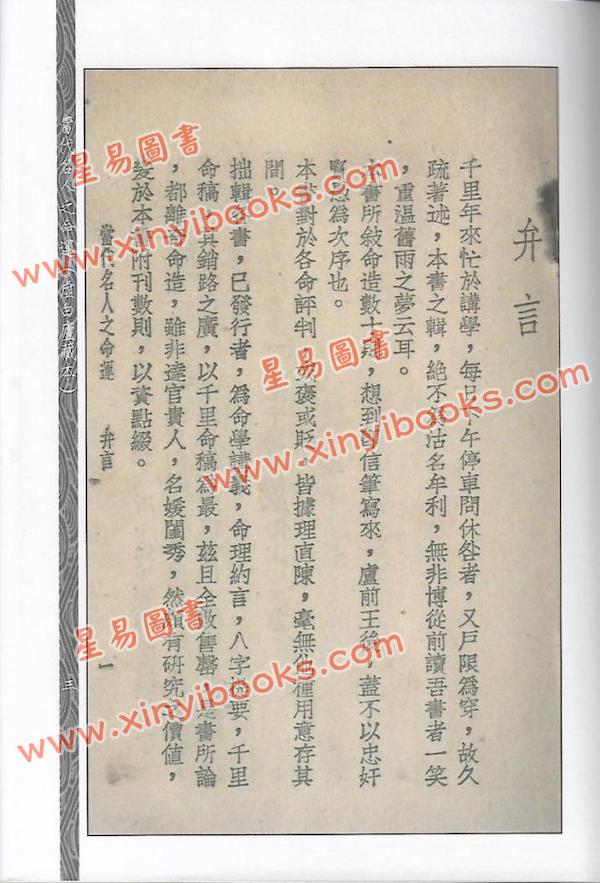 弁言
千里年來忙於講學，每日下午停車問休咎者，又戶限為穿，故久
疏著述，本書之輯，絕不為沽名牟利，無非博從前讀吾書者一笑
，重温舊雨之夢云耳。
本書所敍命造數十，想到 信筆寫來，盧前王後，蓋不以忠奸
為次序也。
本書對於各命評判，或褒或貶，皆據理直陳，毫無他種用意存其
間。
拙輯各書，已發行者，為命學講義，命理約言，八字提要，千里
命稿，其銷路之廣，以千里命稿為最，茲且全數售罄，是書所論
，都離 命造，雖非達官貴人，名媛閨秀，然頗有研究之價值，
爰於本書附刊數則，以資點綴。
當代名人之命運　弁言
一
當代名人之命運（虛白廬藏本）
三
星易圖書
www.xinyibooks.com
星易圖書
www.xinyibooks.com
星易圖書
www.xinyibooks.com